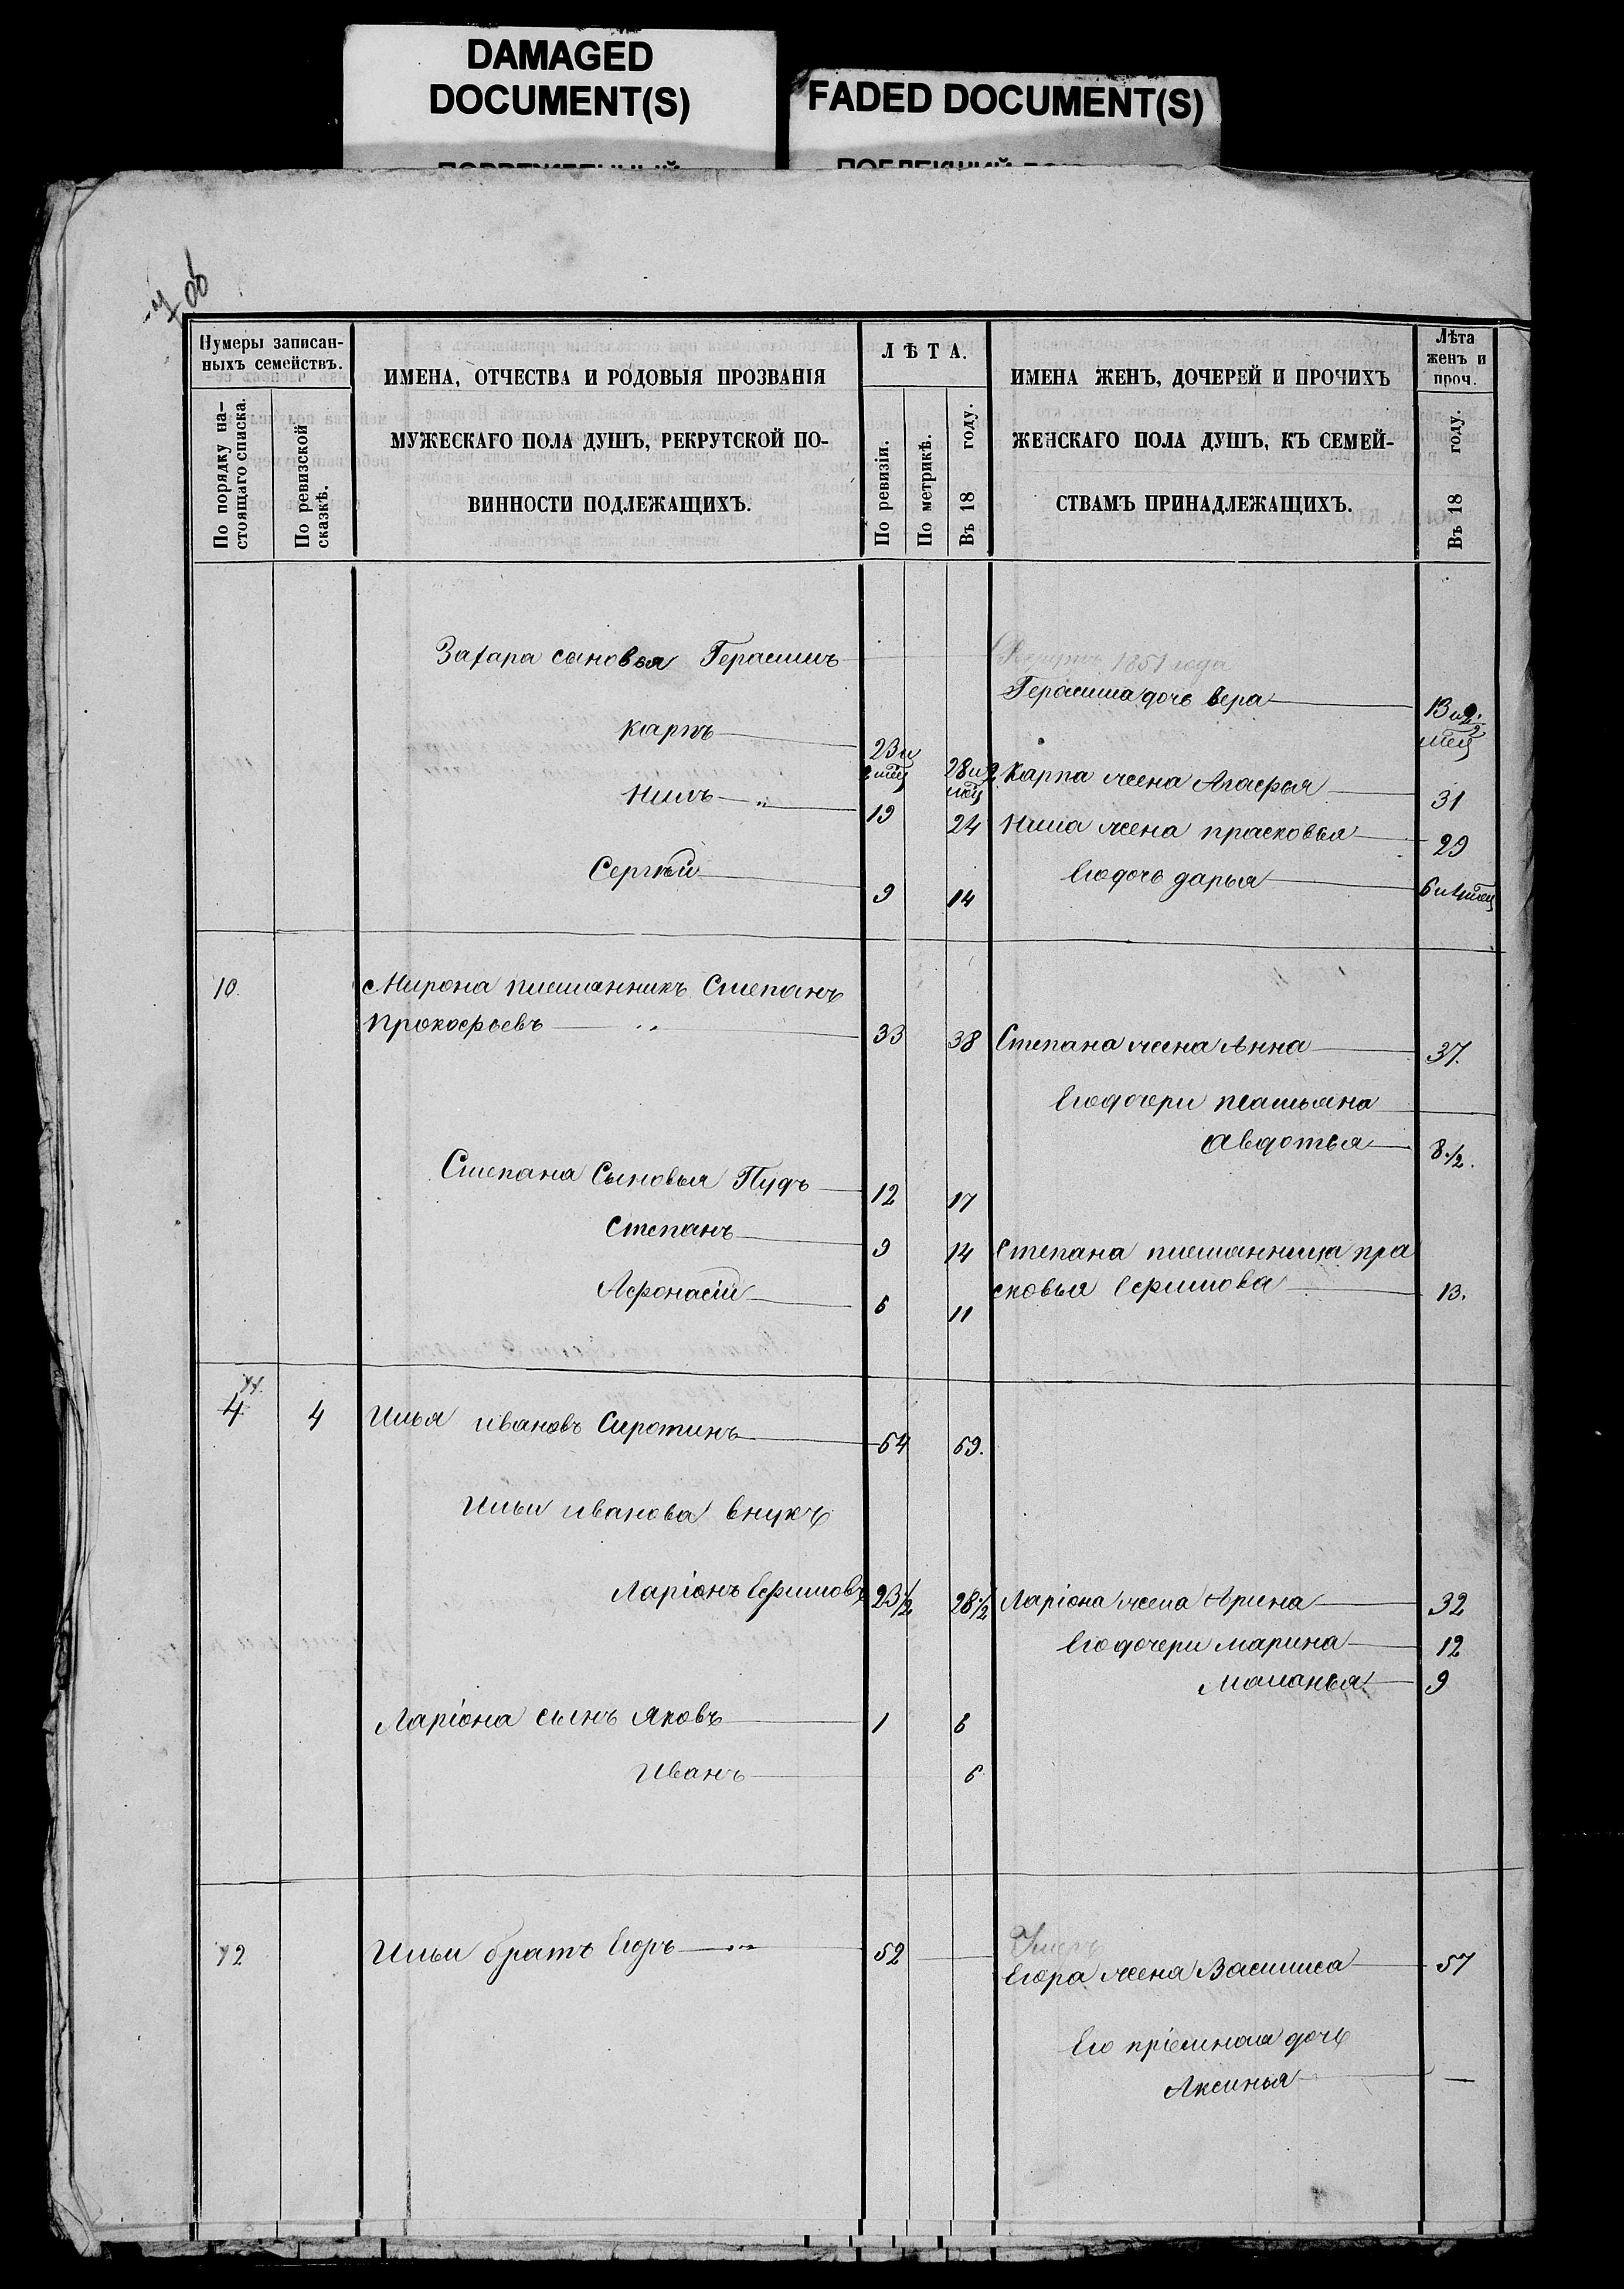 DAMAGED
DOCUMENT(S)
FADED DOCUMENT(S)
об
Нумеры записан-
ныхъ семействъ.
По порядку на-
стоящаго списка.
По ревизской
сказкѣ.
ИМЕНА, ОТЧЕСТВА И РОДОВЫЯ ПРОЗВАНІЯ
МУЖЕСКАГО ПОЛА ДУШЪ, РЕКРУТСКОЙ ПО-
ВИННОСТИ ПОДЛЕЖАЩИХЪ.
ЛѢТА.
По ревизіи.
По метрикѣ.
Въ 18 году.
ИМЕНА ЖЕНЪ, ДОЧЕРЕЙ И ПРОЧИХЪ
ЖЕНСКАГО ПОЛА ДУШЪ, КЪ СЕМЕЙ-
СТВАМЪ ПРИНАДЛЕЖАЩИХЪ.
Лѣта
женъ и
проч.
Въ 18 году.
Захара сыновья Герасимъ
1851 года
Герасима дочь вера 13 и мец
карпъ 23 и 2 мец 28 и 2 мец Карпа жена Агафья 31
Нилъ " 19 24 Нила жена прасковья 29
Сергѣй 9 14 Его дочь дарья 6 и 4 мец
10. Мирона племянникъ Степанъ
Прокофьевъ " 33 38 Степана жена Анна 37.
Его дочери татьяна
Авдотья 8 1/2.
Степана Сыновья Пудъ 12 17
Степанъ 9 14 Степана племянница пра
Афонасій 6 11 сковья Ефимова 13.
11.
4 4 Илья ивановъ Сиротинъ 64 69.
Ильи иванова внукъ
Ларіонъ Ефимовъ 23 1/2 28 1/2 Ларіона жена Арина 32
Его дочери марина 12
Маланья 9
Ларіона сынъ Яковъ 1 6
Иванъ 6
12 Ильи братъ Егоръ " 52
Умеръ
Егора жена Василиса 57
Его пріемная дочь
Аксинья —